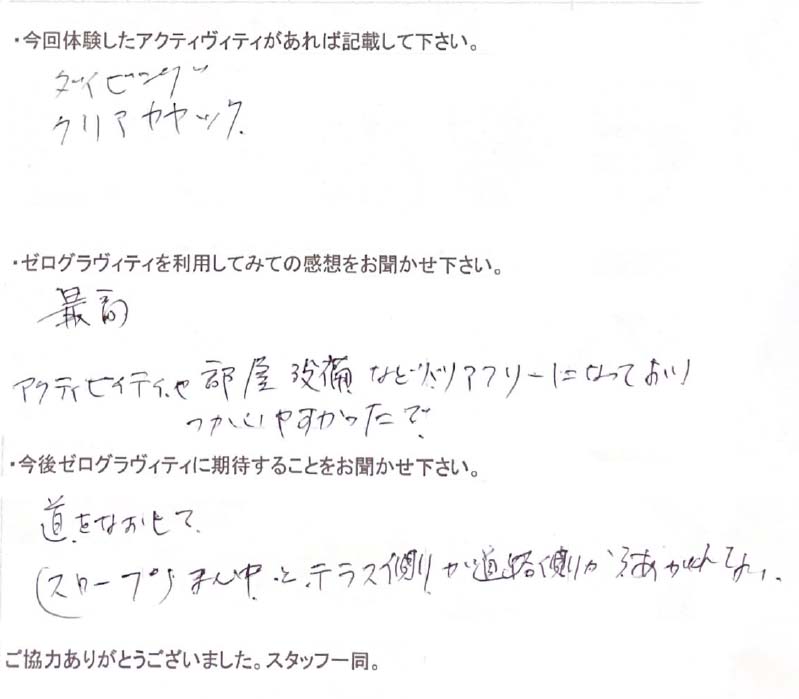 ・今回体験したアクティヴィティがあれば記載して下さい。
ダイビング
クリアカヤック
・ゼログラヴィティを利用してみての感想をお聞かせ下さい。
最高
アクティビイティや部屋設備などバリアフリーになっており
つかいやすかったで
・今後ゼログラヴィティに期待することをお聞かせ下さい。
道をなおして
(スロープ まん中とテラス側が道路側から
ご協力ありがとうございました。スタッフ一同。